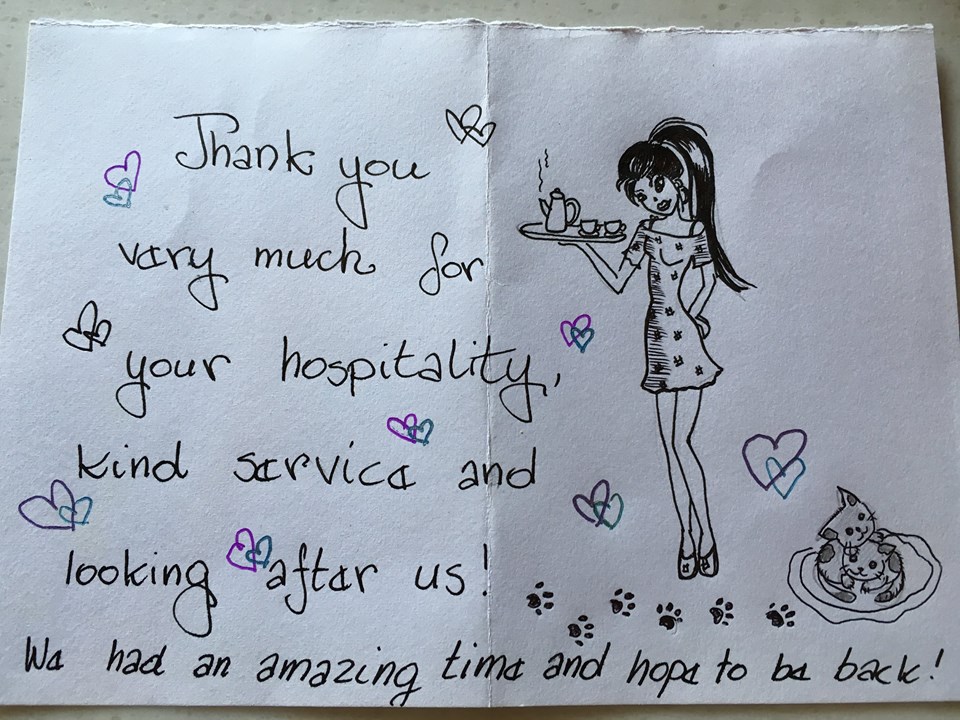 Thank you
very much for
your hospitality,
kind service and
looking after us!
We had an amazing time and hope to be back!